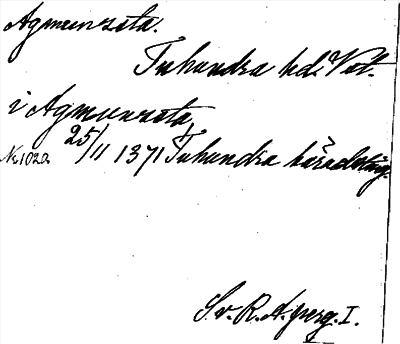 Agmunzsta.
Tuhundra hd. Vst.
i Agmunzsta,
Nr 1022 25/11 1371 Tuhundra häradsting.
S.v. R.A. perg. I.